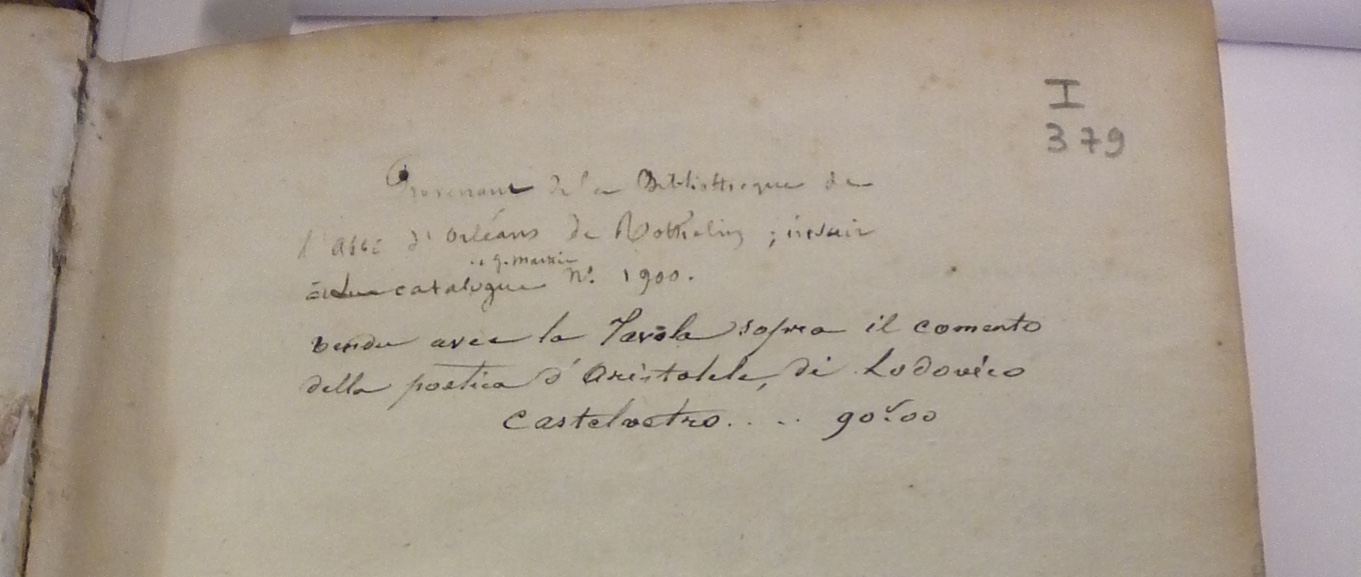 I
379
Provenant de la Bibliotheque de
l'abbé d'Orléans de Rothelin ;
g. martin
catalogue Nº. 1900.
vendu avec la Tavola sopra il comento
della poetica d'Aristotele, di Lodovico
Castelvetro.... 90f.00